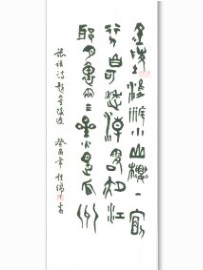 金陵津渡小山樓一宿
行人自可愁潮落夜江
斜月裏三星火是瓜州
張祜詩題金陵渡 癸酉年 書